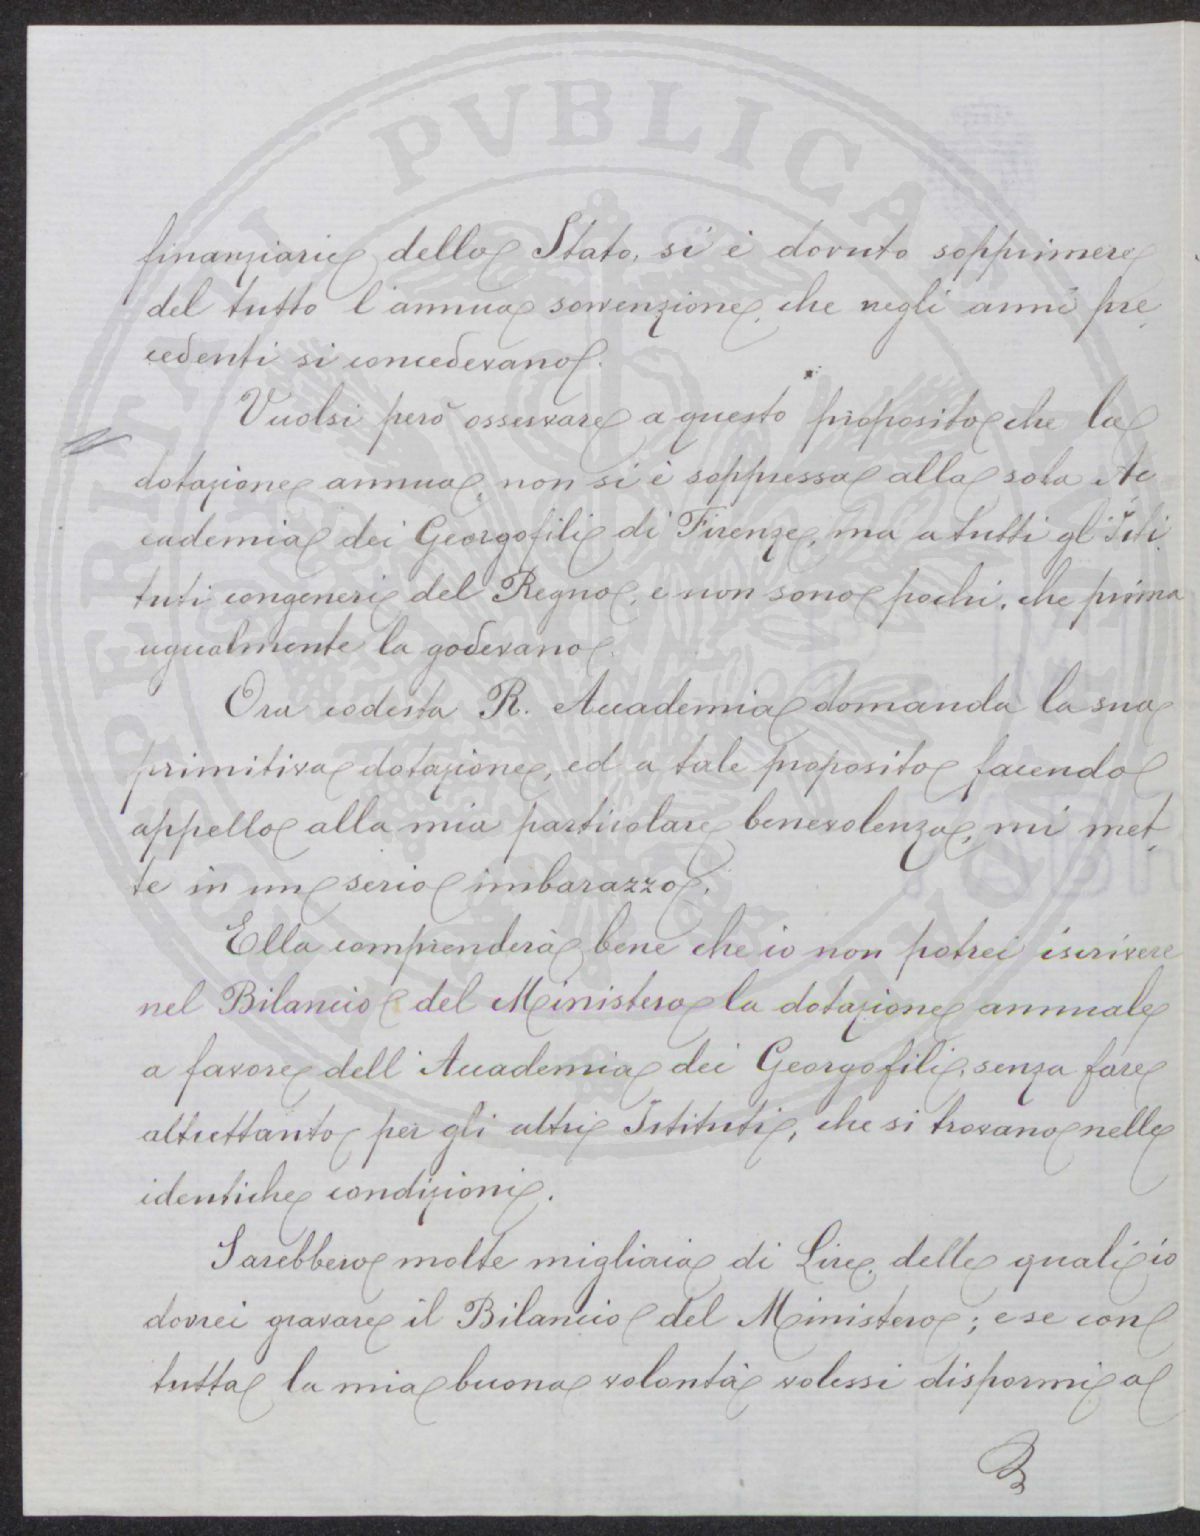 finanziarie dello Stato, si è dovuto sopprimere
del tutto l'annua sovvenzione, che negli anni pre,
cedenti si concedevano.
Vuolsi però osservare a questo proposito che la
dotazione annua, non si è soppressa alla sola Ac
cademia dei Georgofili di Firenze, ma a tutti gl'Isti,
tuti congeneri del Regno, e non sono pochi, che prima
ugualmente la godevano.
Ora codesta R. Accademia domanda la sua
primitiva dotazione, ed a tale proposito facendo
appello alla mia particolare benevolenza, mi met,
te in un serio imbarazzo.
Ella comprenderà bene che io non potrei iscrivere
nel Bilancio del Ministero la dotazione annuale
a favore dell'Accademia dei Georgofili, senza fare
altrettanto per gli altri Istituti, che si trovano nelle
identiche condizioni.
Sarebbero molte migliaia di Lire, delle quali io
dovrei gravare il Bilancio del Ministero; e se con
tutta la mia buona volontà volessi dispormi a